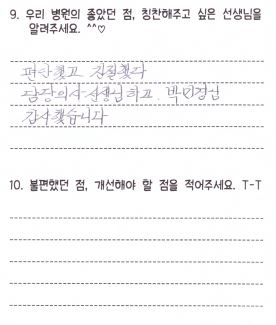 9. 우리 병원의 좋았던 점, 칭찬해주고 싶은 선생님을
알려주세요. ^^♡
편안했고 친절했다
담당의사선생님하고. 박민경님
감사했습니다
10. 불편했던 점, 개선해야 할 점을 적어주세요. T-T